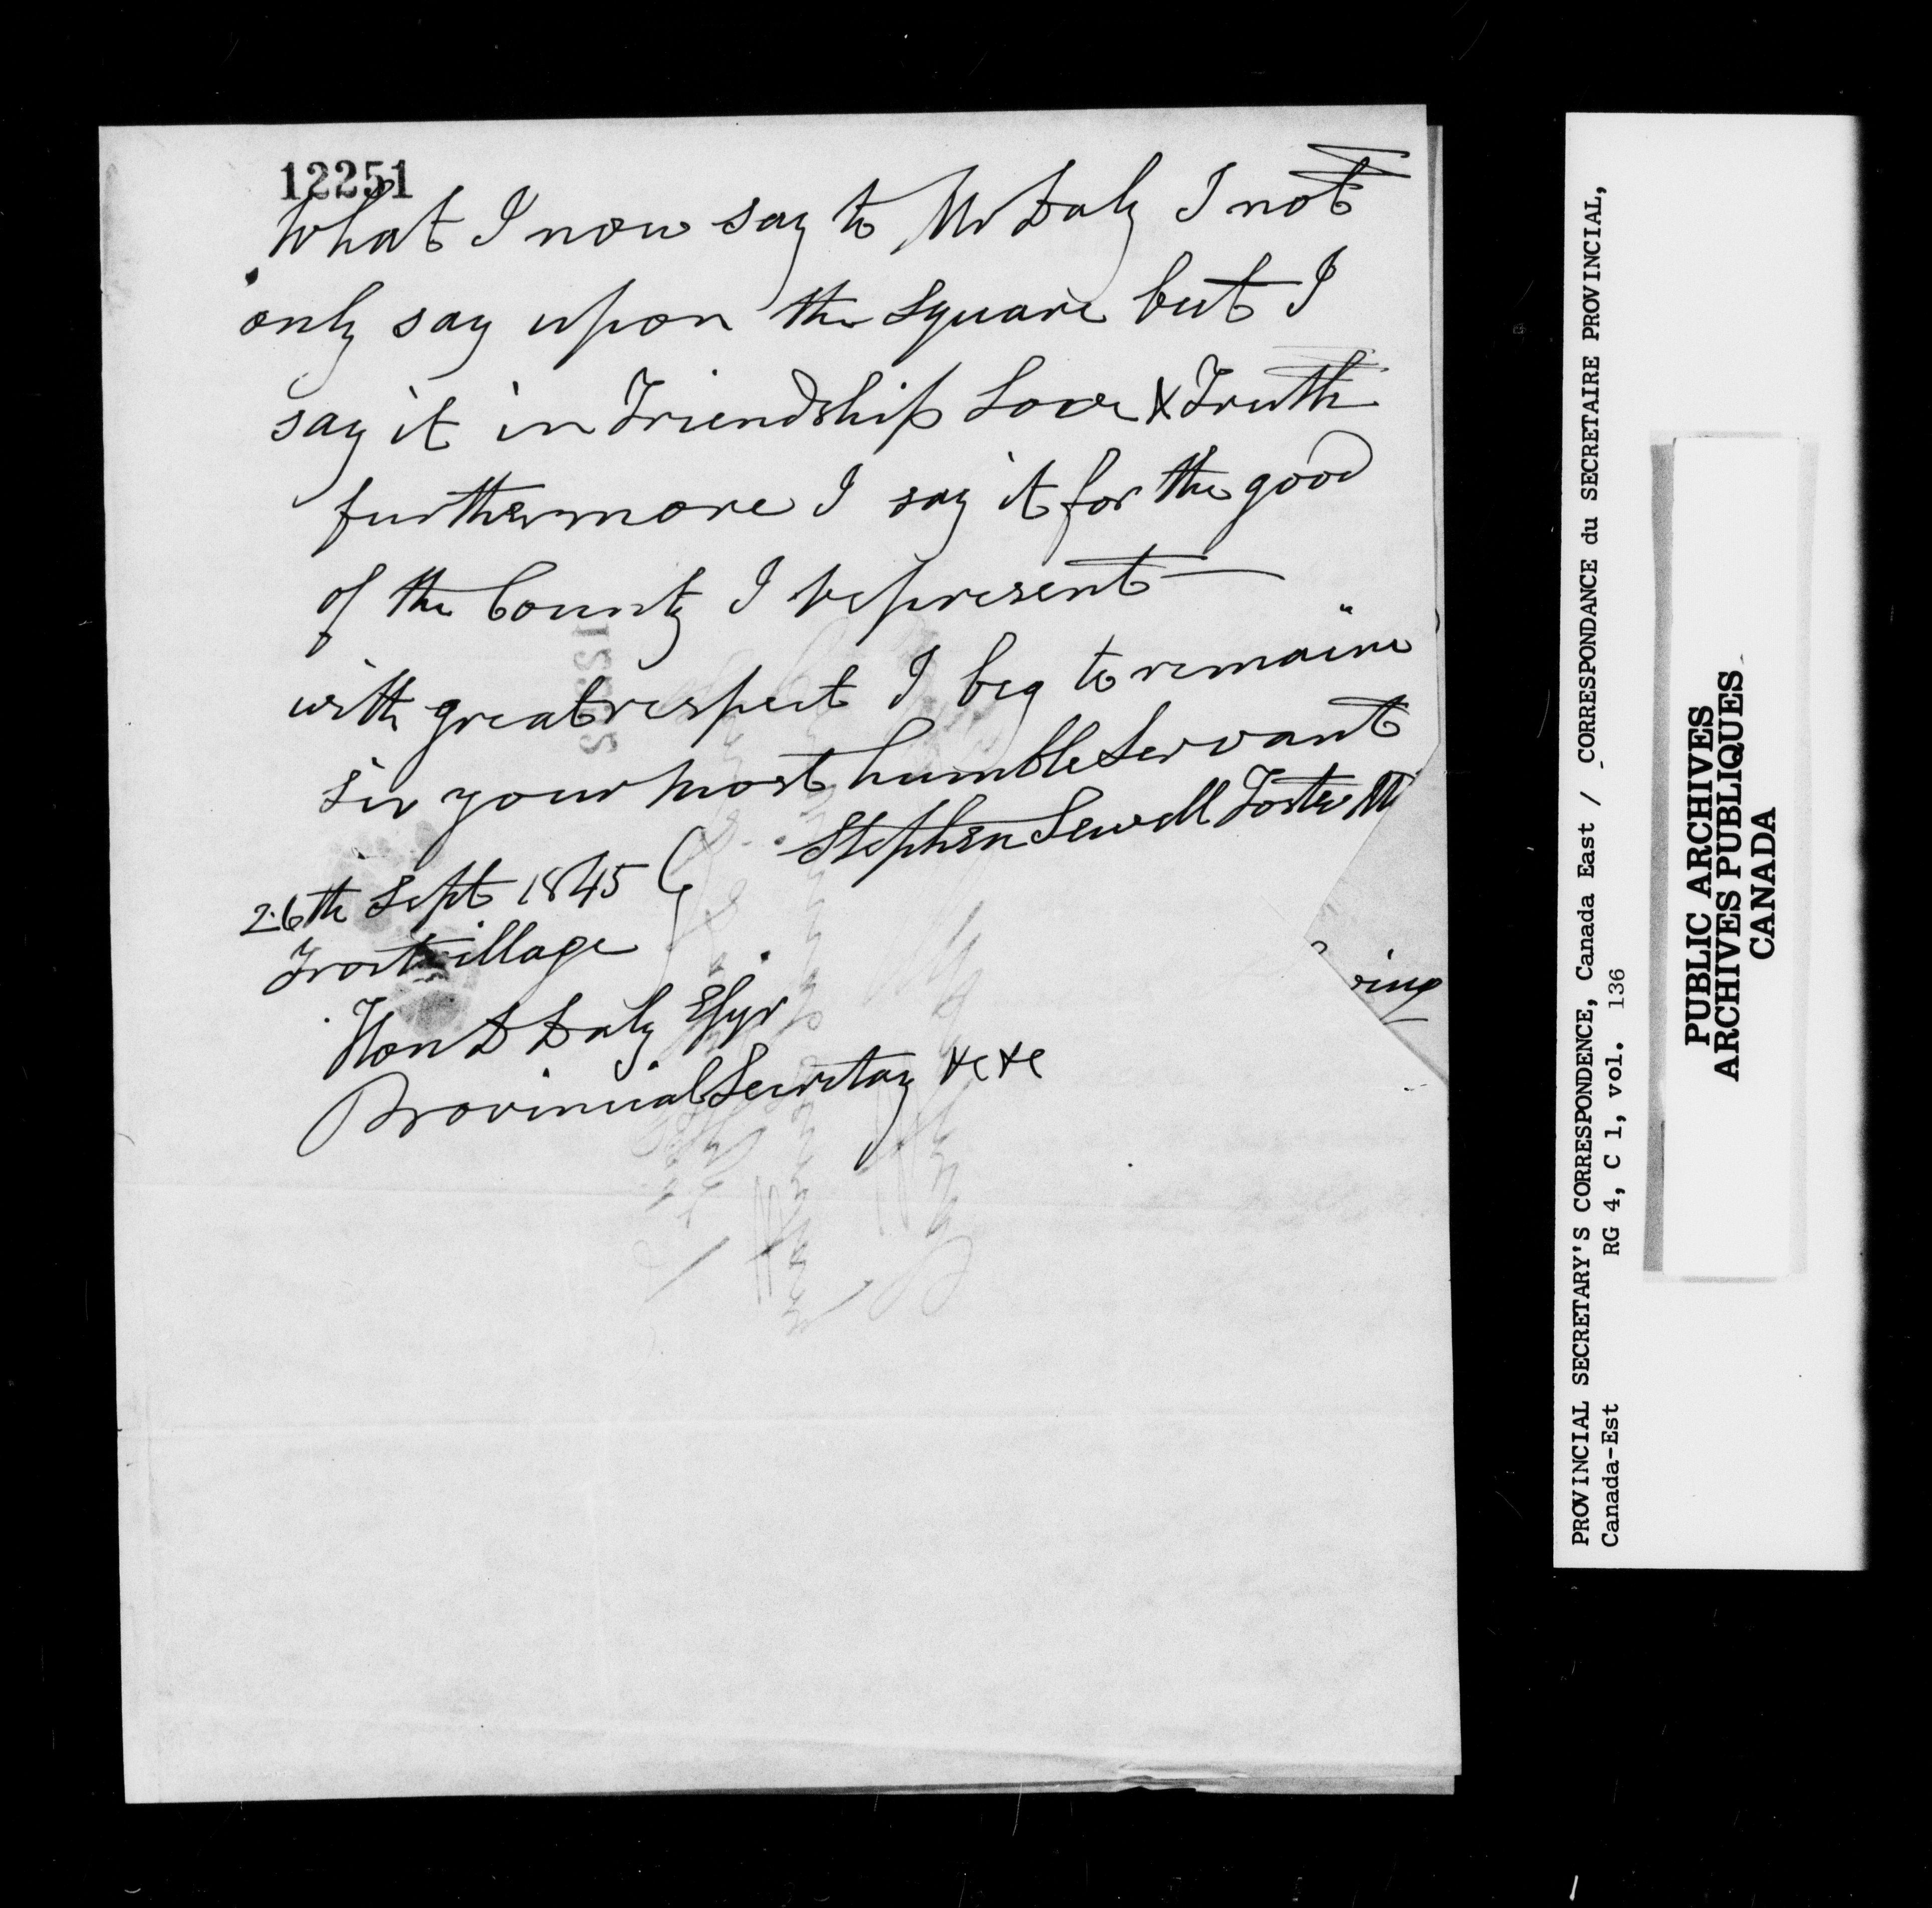 12251
What I now say to Mr Daly I not
only say upon the Square but I
say it in Friendship Love & Truth
furthermore I say it for the good
of the County I represent —
with great respect I beg to remain
sir your most humble Servant
Stephen Sewell Foster M
26th Sept 1845
Frostvillage
Hon D Daly Esqr
Provincial Secretary &c &c
ring
PROVINCIAL SECRETARY'S CORRESPONDENCE, Canada East / CORRESPONDANCE du SECRETAIRE PROVINCIAL,
Canada-Est RG 4, C 1, vol. 136
PUBLIC ARCHIVES
ARCHIVES PUBLIQUES
CANADA